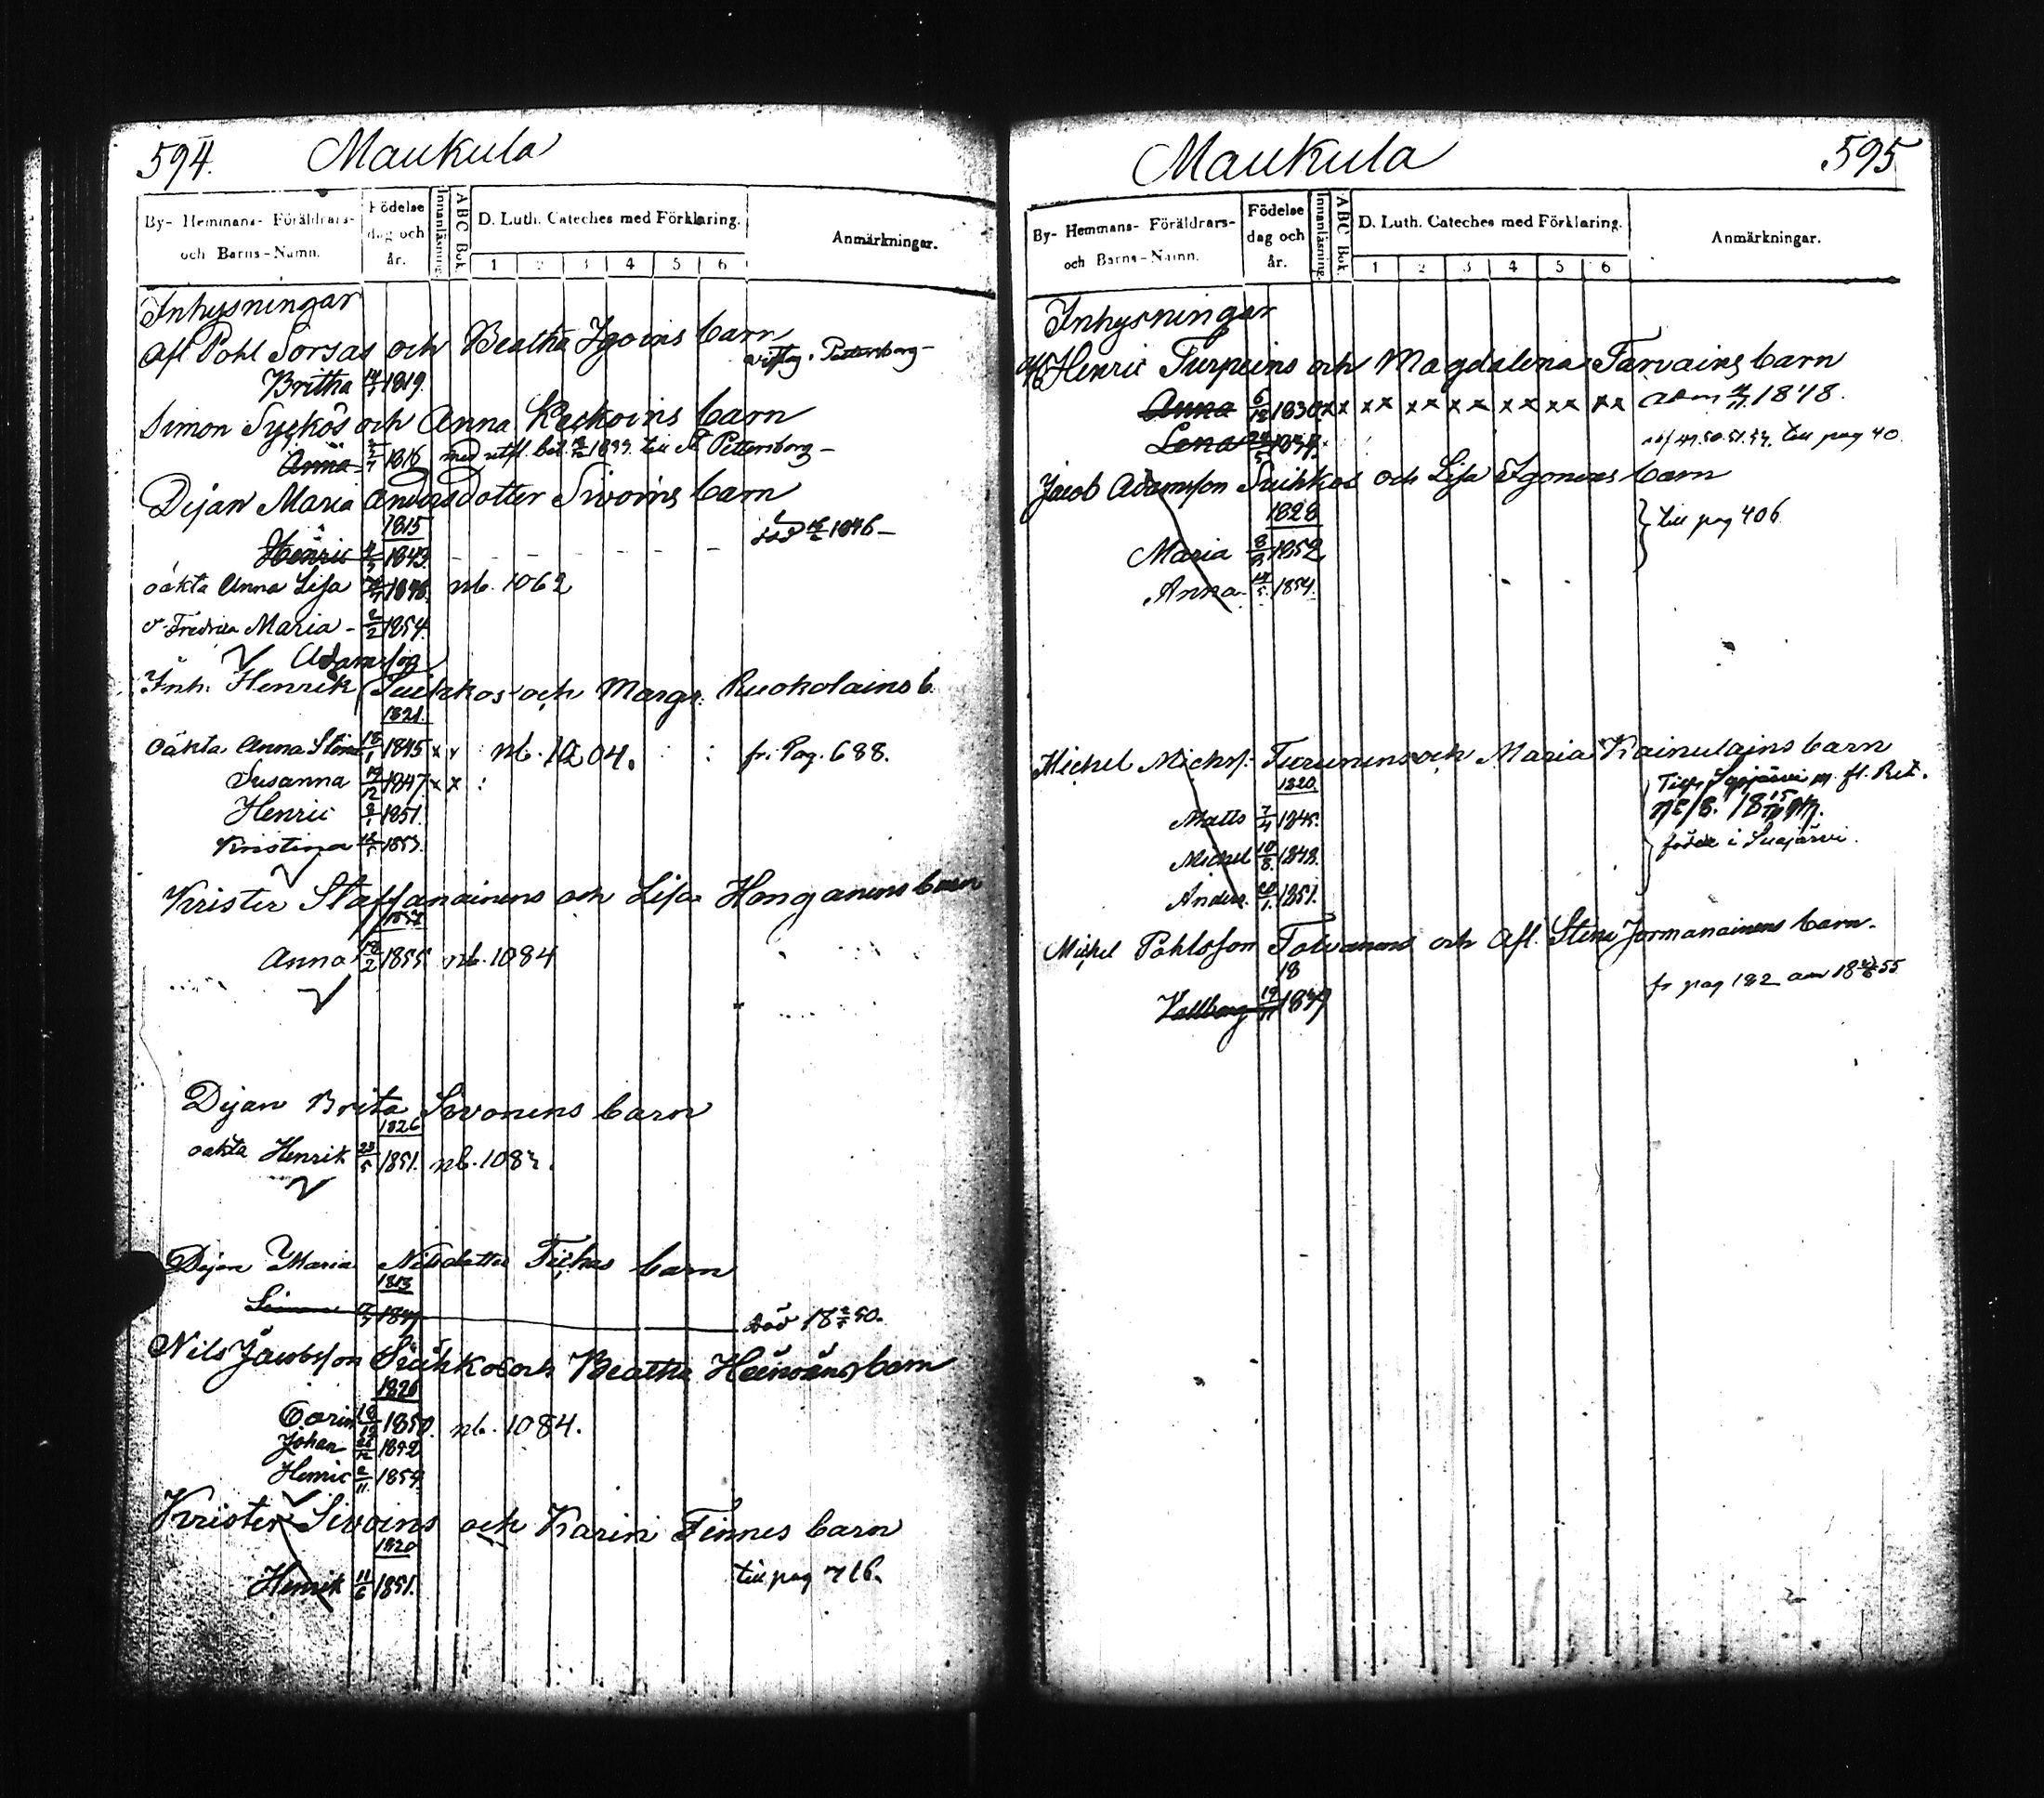 594. Maukula
By- Hemmans- Föräldrars- och Barns-Namn. Födelse dag och år. Innanläsning. ABC Bok. D. Luth. Cateches med Förklaring. 1 2 3 4 5 6 Anmärkningar.
Inhysningar
Afl Pohl Sorsas och Beatha Igoins barn
Britha 1819.
Simon Syckös och Anna Keckoins barn
Anna 1816 med utfl. bet. till St Pettersborg-
Dejan Maria Andersdotter Siwoins barn
1815
Henric 1843. död 1846-
oäkta Anna Lisa nb. 1062
o. Fredrica Maria - 2/2 1854.
Adamsson
Inh. Henrik Suikkos och Margr. Ruokolains b.
1821.
oäkta Anna Stina 18/1 1845 x x nb. 1204. fr. Pag. 688.
Susanna 19/12 1847. x x
Henric 1851.
Kristina 1853.
Krister Staffanainens och Lisa Honganens barn
Anna 1855. nb. 1084
Dejan Brita Sivonens barn
1826
oäkta Henrik 23/5 1851. nb. 1083.
Dejan Maria Nilsdotter Tiehas barn
1813
död 50.
Nils Jacobsson Suihkos och Beatha barn
1826
Carin 18/12 1850. nb. 1084.
Johan 1852
Henric 2/11 1854.
Krister Sivoins och Karin Finnes barn
1820
Henrik 11/6 1851. till pag 716.
Maukula 595
By- Hemmans- Föräldrars- och Barns-Namn. Födelse dag och år. Innanläsning. ABC Bok. D. Luth. Cateches med Förklaring. 1 2 3 4 5 6 Anmärkningar.
Inhysningar
Afl Henric Turpeins och Magdalena Tarvains barn
Anna 6/12 1830. x x xx xx xx xx xx xx 1848.
Lena till pag 40.
Jacob Adamsson Suihkos och Lisa Igonens barn
1828 till pag 406
Maria 1852
Anna 1854.
Michel Michs. Turunens och Maria Kainulains barn
1820.
Matts 1845.
Michel 10/8 1848. födde i Suojärvi.
Anders 20/1 1851.
Michel Pohlsson Tolvanens och Afl. Stina Jormanainens barn.
18 fr pag 182
Vallborg 1849